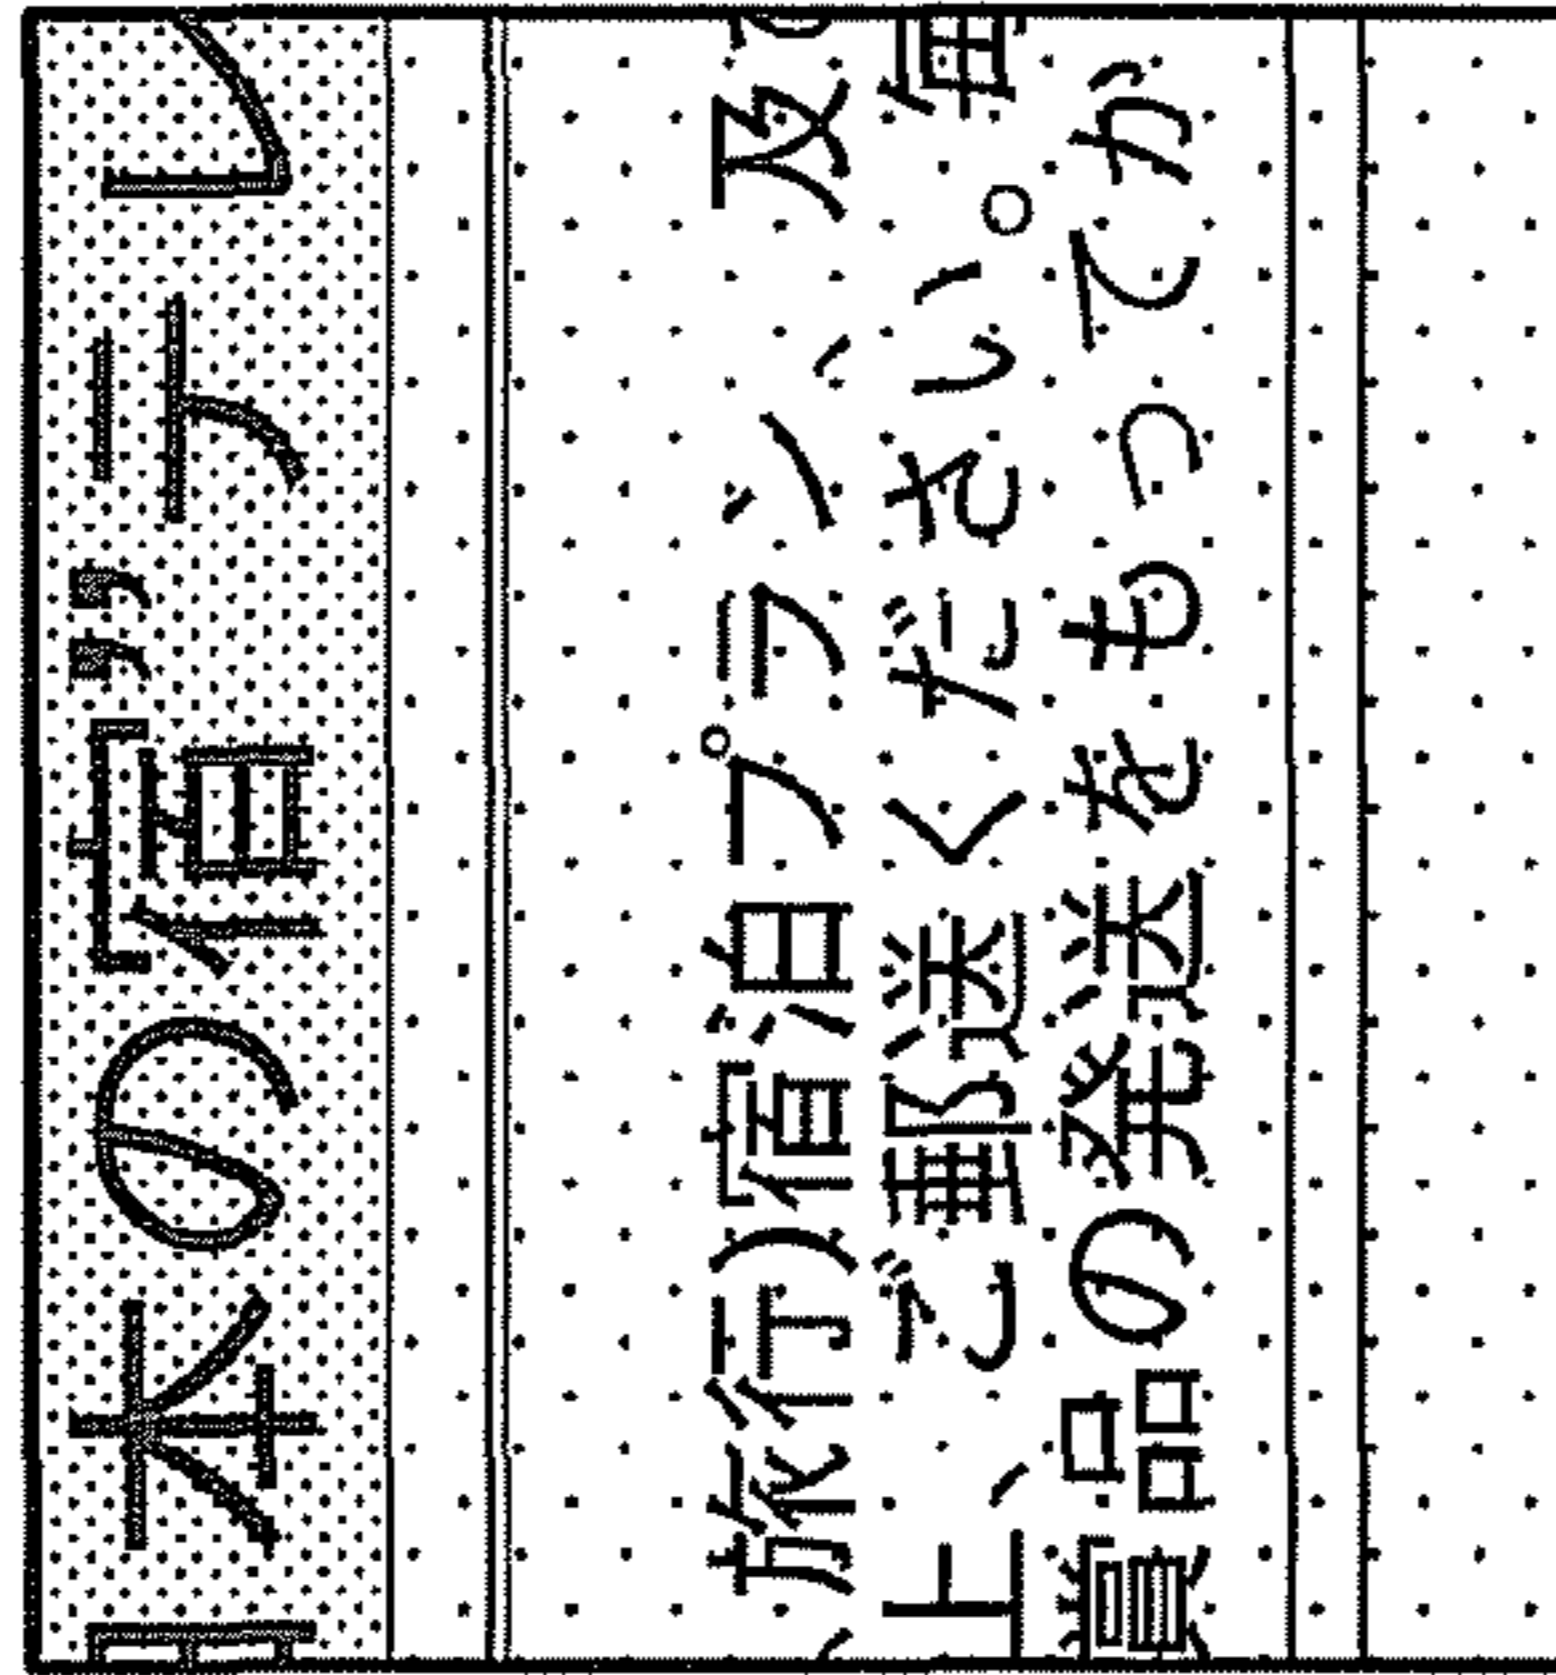 日本の宿”ラレ
旅行)宿泊プラン、及
上、ご郵送ください。
賞品の発送をもってか